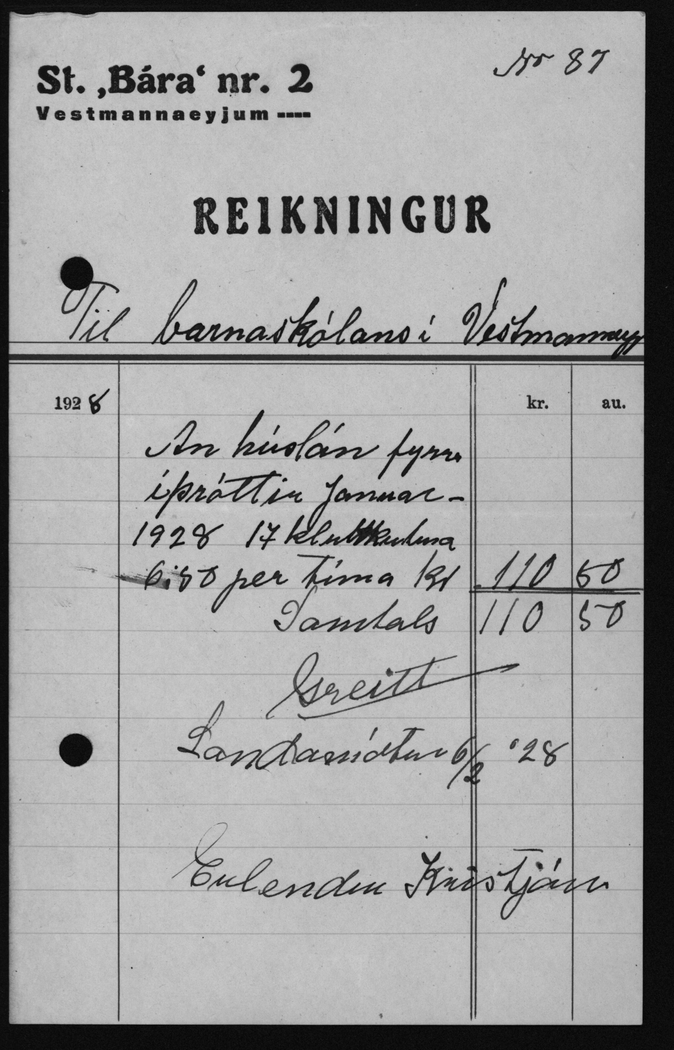 No 87
St. ‚Bára‘ nr. 2
Vestmannaeyjum ----
REIKNINGUR
Til barnaskólans í Vestmannaeyj
1928 kr. au.
An húslán fyrir
íþróttir Januar-
1928 17 klukkutima
6.50 per tíma kr 110 50
Samtals 110 50
Greitt
6/2 '28
Erlendur Kristján